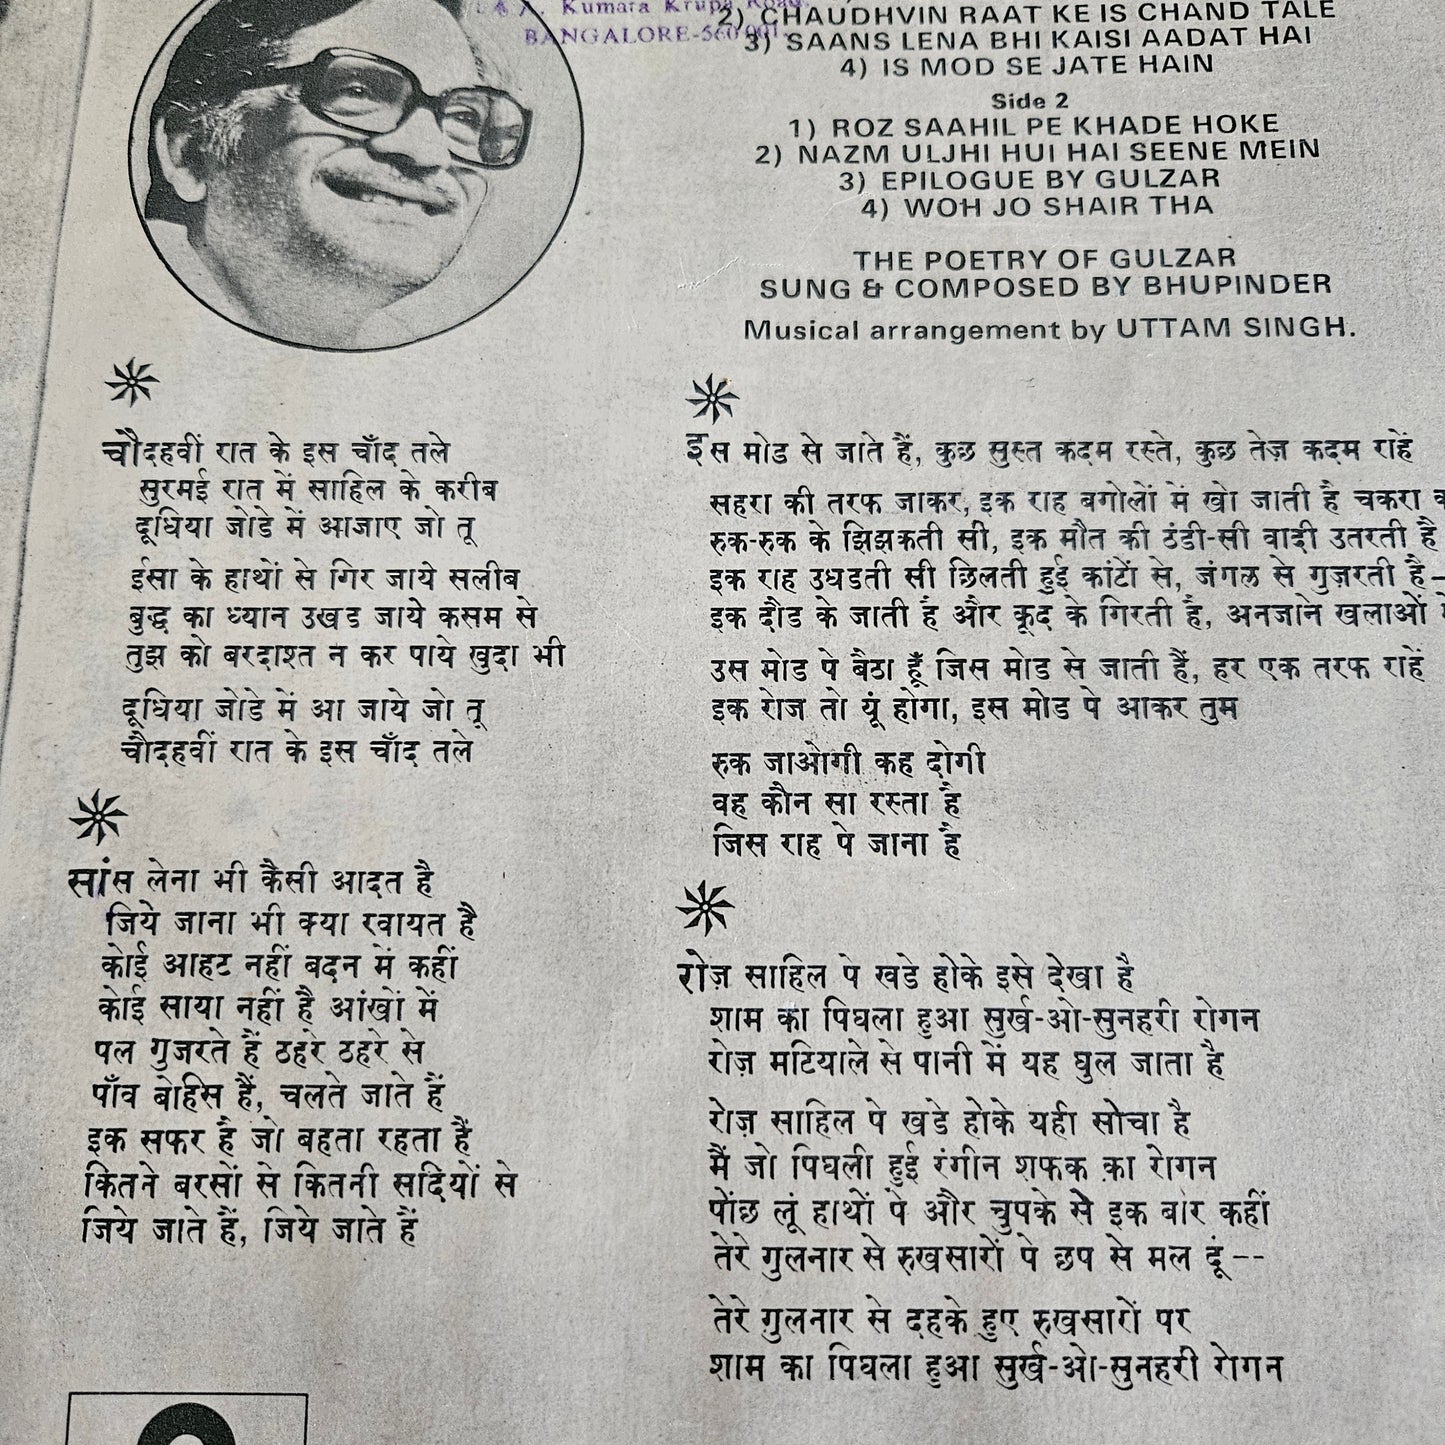 Kumara Krupa Road,
BANGALORE-560 001.
2) CHAUDHVIN RAAT KE IS CHAND TALE
3) SAANS LENA BHI KAISI AADAT HAI
4) IS MOD SE JATE HAIN
Side 2
1) ROZ SAAHIL PE KHADE HOKE
2) NAZM ULJHI HUI HAI SEENE MEIN
3) EPILOGUE BY GULZAR
4) WOH JO SHAIR THA
THE POETRY OF GULZAR
SUNG & COMPOSED BY BHUPINDER
Musical arrangement by UTTAM SINGH.
चौदहवीं रात के इस चाँद तले
सुरमई रात में साहिल के करीब
दूधिया जोडे में आजाए जो तू
ईसा के हाथों से गिर जाये सलीब
बुद्ध का ध्यान उखड जाये कसम से
तुझ को बरदाश्त न कर पाये खुदा भी
दूधिया जोडे में आ जाये जो तू
चौदहवीं रात के इस चाँद तले
सांस लेना भी कैसी आदत है
जिये जाना भी क्या रवायत है
कोई आहट नहीं बदन में कहीं
कोई साया नहीं है आंखों में
पल गुजरते हैं ठहरे ठहरे से
पाँव बोहिस हैं, चलते जाते हैं
इक सफर है जो बहता रहता है
कितने बरसों से कितनी सदियों से
जिये जाते हैं, जिये जाते हैं
इस मोड से जाते हैं, कुछ सुस्त कदम रस्ते, कुछ तेज़ कदम राहें
सहरा की तरफ जाकर, इक राह बगोलों में खो जाती है चकरा
रुक-रुक के झिझकती सी, इक मौत की ठंडी-सी वादी उतरती है
इक राह उधडती सी छिलती हुई कांटों से, जंगल से गुज़रती है-
इक दौड के जाती है और कूद के गिरती है, अनजाने खलाओं
उस मोड पे बैठा हूँ जिस मोड से जाती हैं, हर एक तरफ राहें
इक रोज तो यूं होगा, इस मोड पे आकर तुम
रुक जाओगी कह दोगी
वह कौन सा रस्ता है
जिस राह पे जाना है
रोज़ साहिल पे खडे होके इसे देखा है
शाम का पिघला हुआ सुर्ख-ओ-सुनहरी रोगन
रोज़ मटियाले से पानी में यह घुल जाता है
रोज़ साहिल पे खडे होके यही सोचा है
मैं जो पिघली हुई रंगीन शफक का रोगन
पोंछ लूं हाथों पे और चुपके से इक बार कहीं
तेरे गुलनार से रुखसारों पे छप से मल दूं --
तेरे गुलनार से दहके हुए रुखसारों पर
शाम का पिघला हुआ सुर्ख-ओ-सुनहरी रोगन